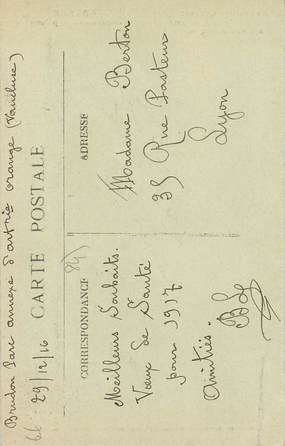 Brudon Parc annexe d'artrie orange (Vaucluse)
29/12/16
CARTE POSTALE
CORRESPONDANCE
Meilleurs Souhaits.
Vœux de Santé
pour 1917
Amitiés.
ADRESSE
Madame Berton
35 Rue Pasteur
Lyon